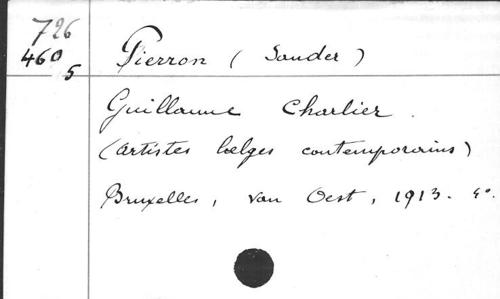 726
460
5
Pierron (Sander)
Guillaume Charlier.
(artistes belges contemporains)
Bruxelles, Van Oest, 1913. 4°.